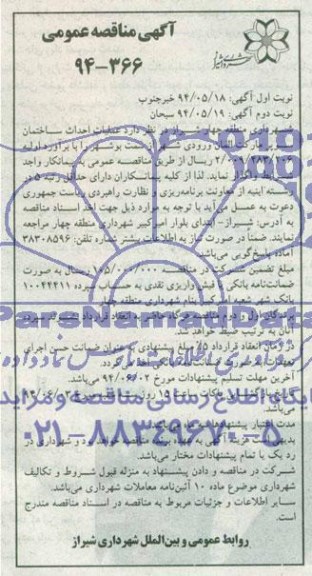 آگهی مناقصه عمومی
۹۴-۳۶۶
نوبت اول آگهی: ۹۴/۰۵/۱۸ خبرجنوب
نوبت دوم آگهی: ۹۴/۰۵/۱۹ سبحان
شهرداری منطقه چهار شیراز در نظر دارد عملیات احداث ساختمان
ورودی بوشهر را با برآورد اولیه
ریال از طریق مناقصه عمومی به پیمانکار واجد
واگذار نماید. لذا از کلیه پیمانکاران دارای حداقل رتبه ۵ در
رسته ابنیه از معاونت برنامه‌ریزی و نظارت راهبردی ریاست جمهوری
دعوت به عمل می‌آید با توجه به موارد ذیل جهت اخذ اسناد مناقصه
به آدرس: شیراز- ابتدای بلوار امیرکبیر شهرداری منطقه چهار مراجعه
نمایند. ضمناً در صورت نیاز به اطلاعات بیشتر شماره تلفن: ۳۸۳۰۸۵۹۶
آماده پاسخ‌گویی می‌باشد.
مبلغ تضمین شرکت در مناقصه ۱۰۵/۰۰۰/۰۰۰ ریال به صورت
ضمانت‌نامه بانکی یا فیش واریزی نقدی به حساب سپرده ۱۰۰۴۴۲۱۱
بانک شهر شعبه امیرکبیر بنام شهرداری منطقه چهار
برندگان اول و دوم مناقصه هرگاه حاضر به انعقاد قرارداد نشوند سپرده
آنان به ترتیب ضبط خواهد شد.
در زمان انعقاد قرارداد ۵٪ مبلغ پیشنهادی به عنوان ضمانت حسن اجرای
آخرین مهلت تسلیم پیشنهادات مورخ ۹۴/۰۶/۰۲ می‌باشد.
می‌باشد.
مدت اعتبار پیشنهادها
هزینه آگهی به عهده برنده مناقصه خواهد بود و شهرداری در
رد یک یا تمام پیشنهادات مختار می‌باشد.
شرکت در مناقصه و دادن پیشنهاد به منزله قبول شروط و تکالیف
شهرداری موضوع ماده ۱۰ آئین‌نامه معاملات شهرداری می‌باشد.
سایر اطلاعات و جزئیات مربوط به مناقصه در اسناد مناقصه مندرج
است.
روابط عمومی و بین‌الملل شهرداری شیراز
ParsNamad
پایگاه اطلاع رسانی مناقصات و مزایدات
۰۲۱-۸۸۳۴۹۶۷۰-۵